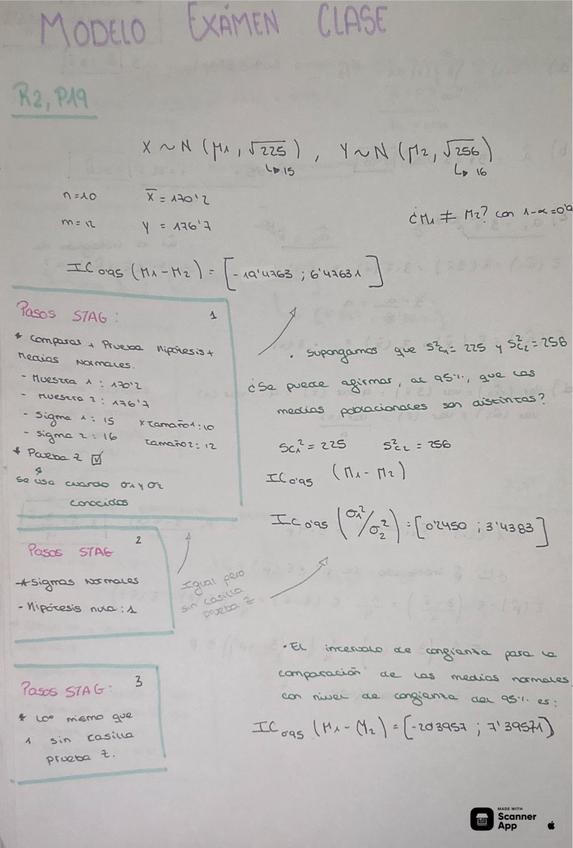 MODELO EXÁMEN CLASE
R2, P19
X ~ N (M1, √225), Y ~ N (M2, √256)
↳ 15 ↳ 16
n=10 X̄ = 170'2
m=12 Y = 176'7
¿M1 ≠ M2? con 1-α=0'9
IC0'95 (M1-M2) = [-19'4763 ; 6'47631]
Pasos STAG: 1
* Comparas + Prueba Hipótesis +
Medias Normales.
- Muestra 1: 170'2
- Muestra 2: 176'7
- Sigma 1: 15 * Tamaño1: 10
- Sigma 2: 16 Tamaño2: 12
* Prueba Z ☑
Se usa cuando σ1 y σ2
conocidos
. Supongamos que S²c1 = 225 y S²c2 = 256
¿Se puede afirmar, al 95%, que las
medias poblacionales son distintas?
Sc1² = 225 S²c2 = 256
IC0'95 (M1-M2)
IC0'95 (σ1²/σ2²) = [0'2450 ; 3'4383]
Pasos STAG 2
* Sigmas Normales
- Hipótesis nula: 1
Igual pero
sin casilla
prueba Z
Pasos STAG: 3
* Lo mismo que
1 sin casilla
prueba Z.
· El intervalo de confianza para la
comparación de las medias normales
con nivel de confianza del 95% es:
IC0'95 (M1-M2) = [-203957 ; 7'39571]
MADE WITH
Scanner
App